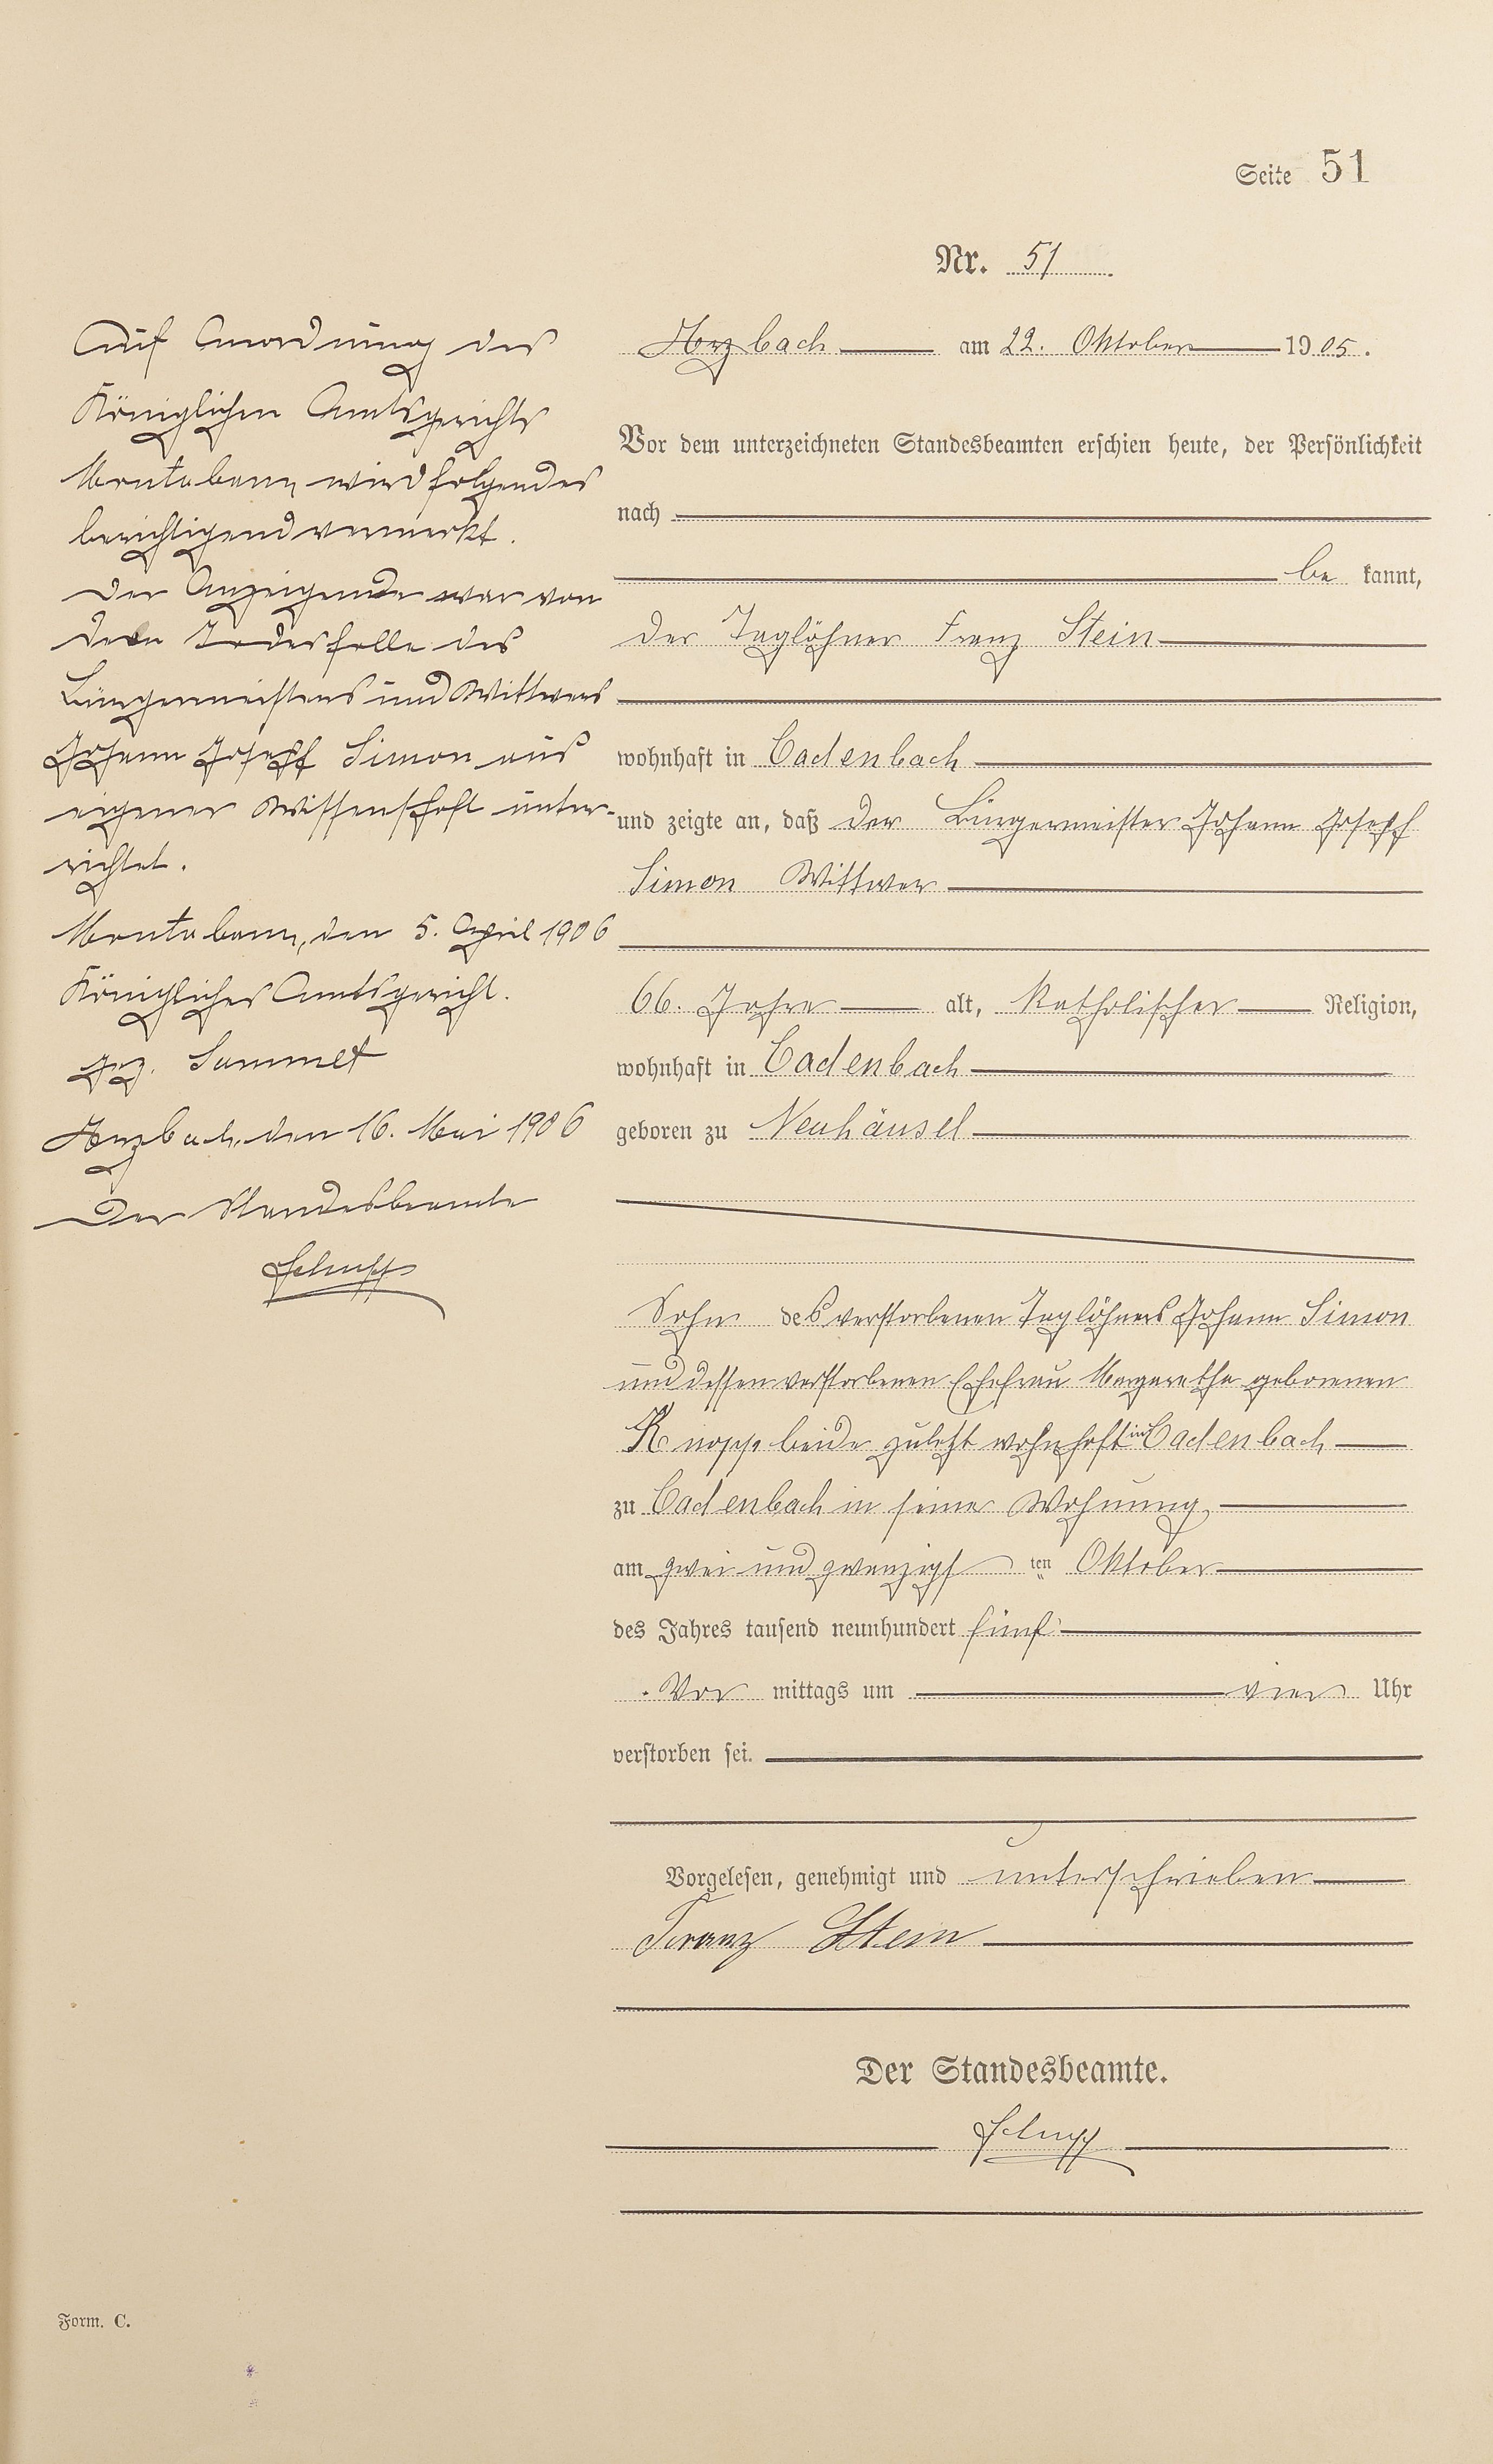 Seite 51
Nr. 51
Arzbach am 22. Oktober 1905.
Vor dem unterzeichneten Standesbeamten erschien heute, der Persönlichkeit
nach
be kannt,
der Taglöhner Franz Stein
wohnhaft in Cadenbach
und zeigte an, daß der Bürgermeister Johann Joseph
Simon Wittwer
66. Jahre alt, katholischer Religion,
wohnhaft in Cadenbach
geboren zu Neuhäusel
Sohn des verstorbenen Taglöhners Johann Simon
und dessen verstorbenen Ehefrau Margaretha geborenen
Knopp beide zuletzt wohnhaft in Cadenbach
zu Cadenbach in seiner Wohnung
am zwei und zwanzigsten Oktober
des Jahres tausend neunhundert fünf
Vor mittags um vier Uhr
verstorben sei.
Vorgelesen, genehmigt und unterschrieben
Franz Stein
Der Standesbeamte.
Schupp
Auf Anordnung des
Königlichen Amtsgerichts
Montabaur wird folgendes
berichtigend vermerkt.
Der Anzeigende war von
dem Todesfalle des
Bürgermeisters und Wittwers
Johann Joseph Simon aus
eigener Wissenschaft unter-
richtet.
Montabaur, den 5. April 1906
Königliches Amtsgericht.
gez. Sammet
Arzbach, den 16. Mai 1906
Der Standesbeamte
Schupp
Form. C.